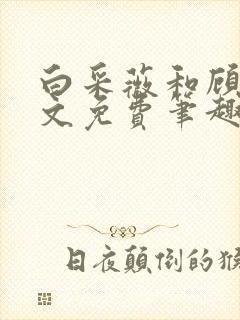 白采薇和顾
文免费笔趣
日夜颠倒的猴